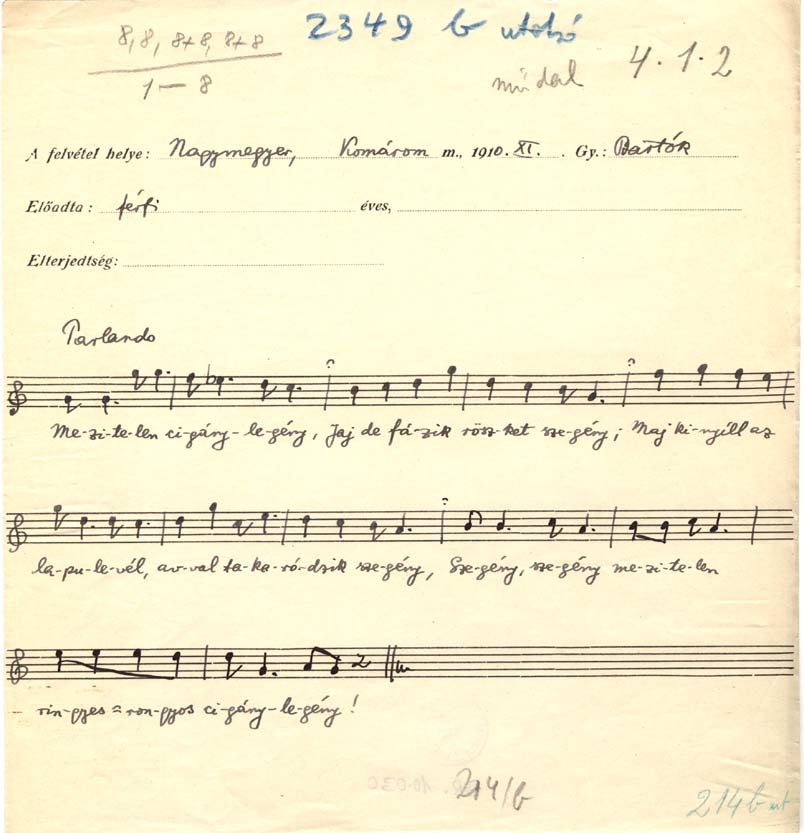 8, 8, 8+8, 8+8
1 — 8
2349 b utolsó
műdal
4. 1. 2
A felvétel helye: Nagymegyer, Komárom m., 1910. XI. Gy.: Bartók
Előadta: férfi éves,
Elterjedtség:
Parlando
Me-zi-te-len ci-gány-le-gény, Jaj de fá-zik rösz-ket sze-gény; Maj ki-nyíll az
la-pu-le-vél, av-val ta-ka-ró-dzik sze-gény, Sze-gény, sze-gény me-zi-te-len
rin-gyes = ron-gyos ci-gány-le-gény!
214/b
214 b ut